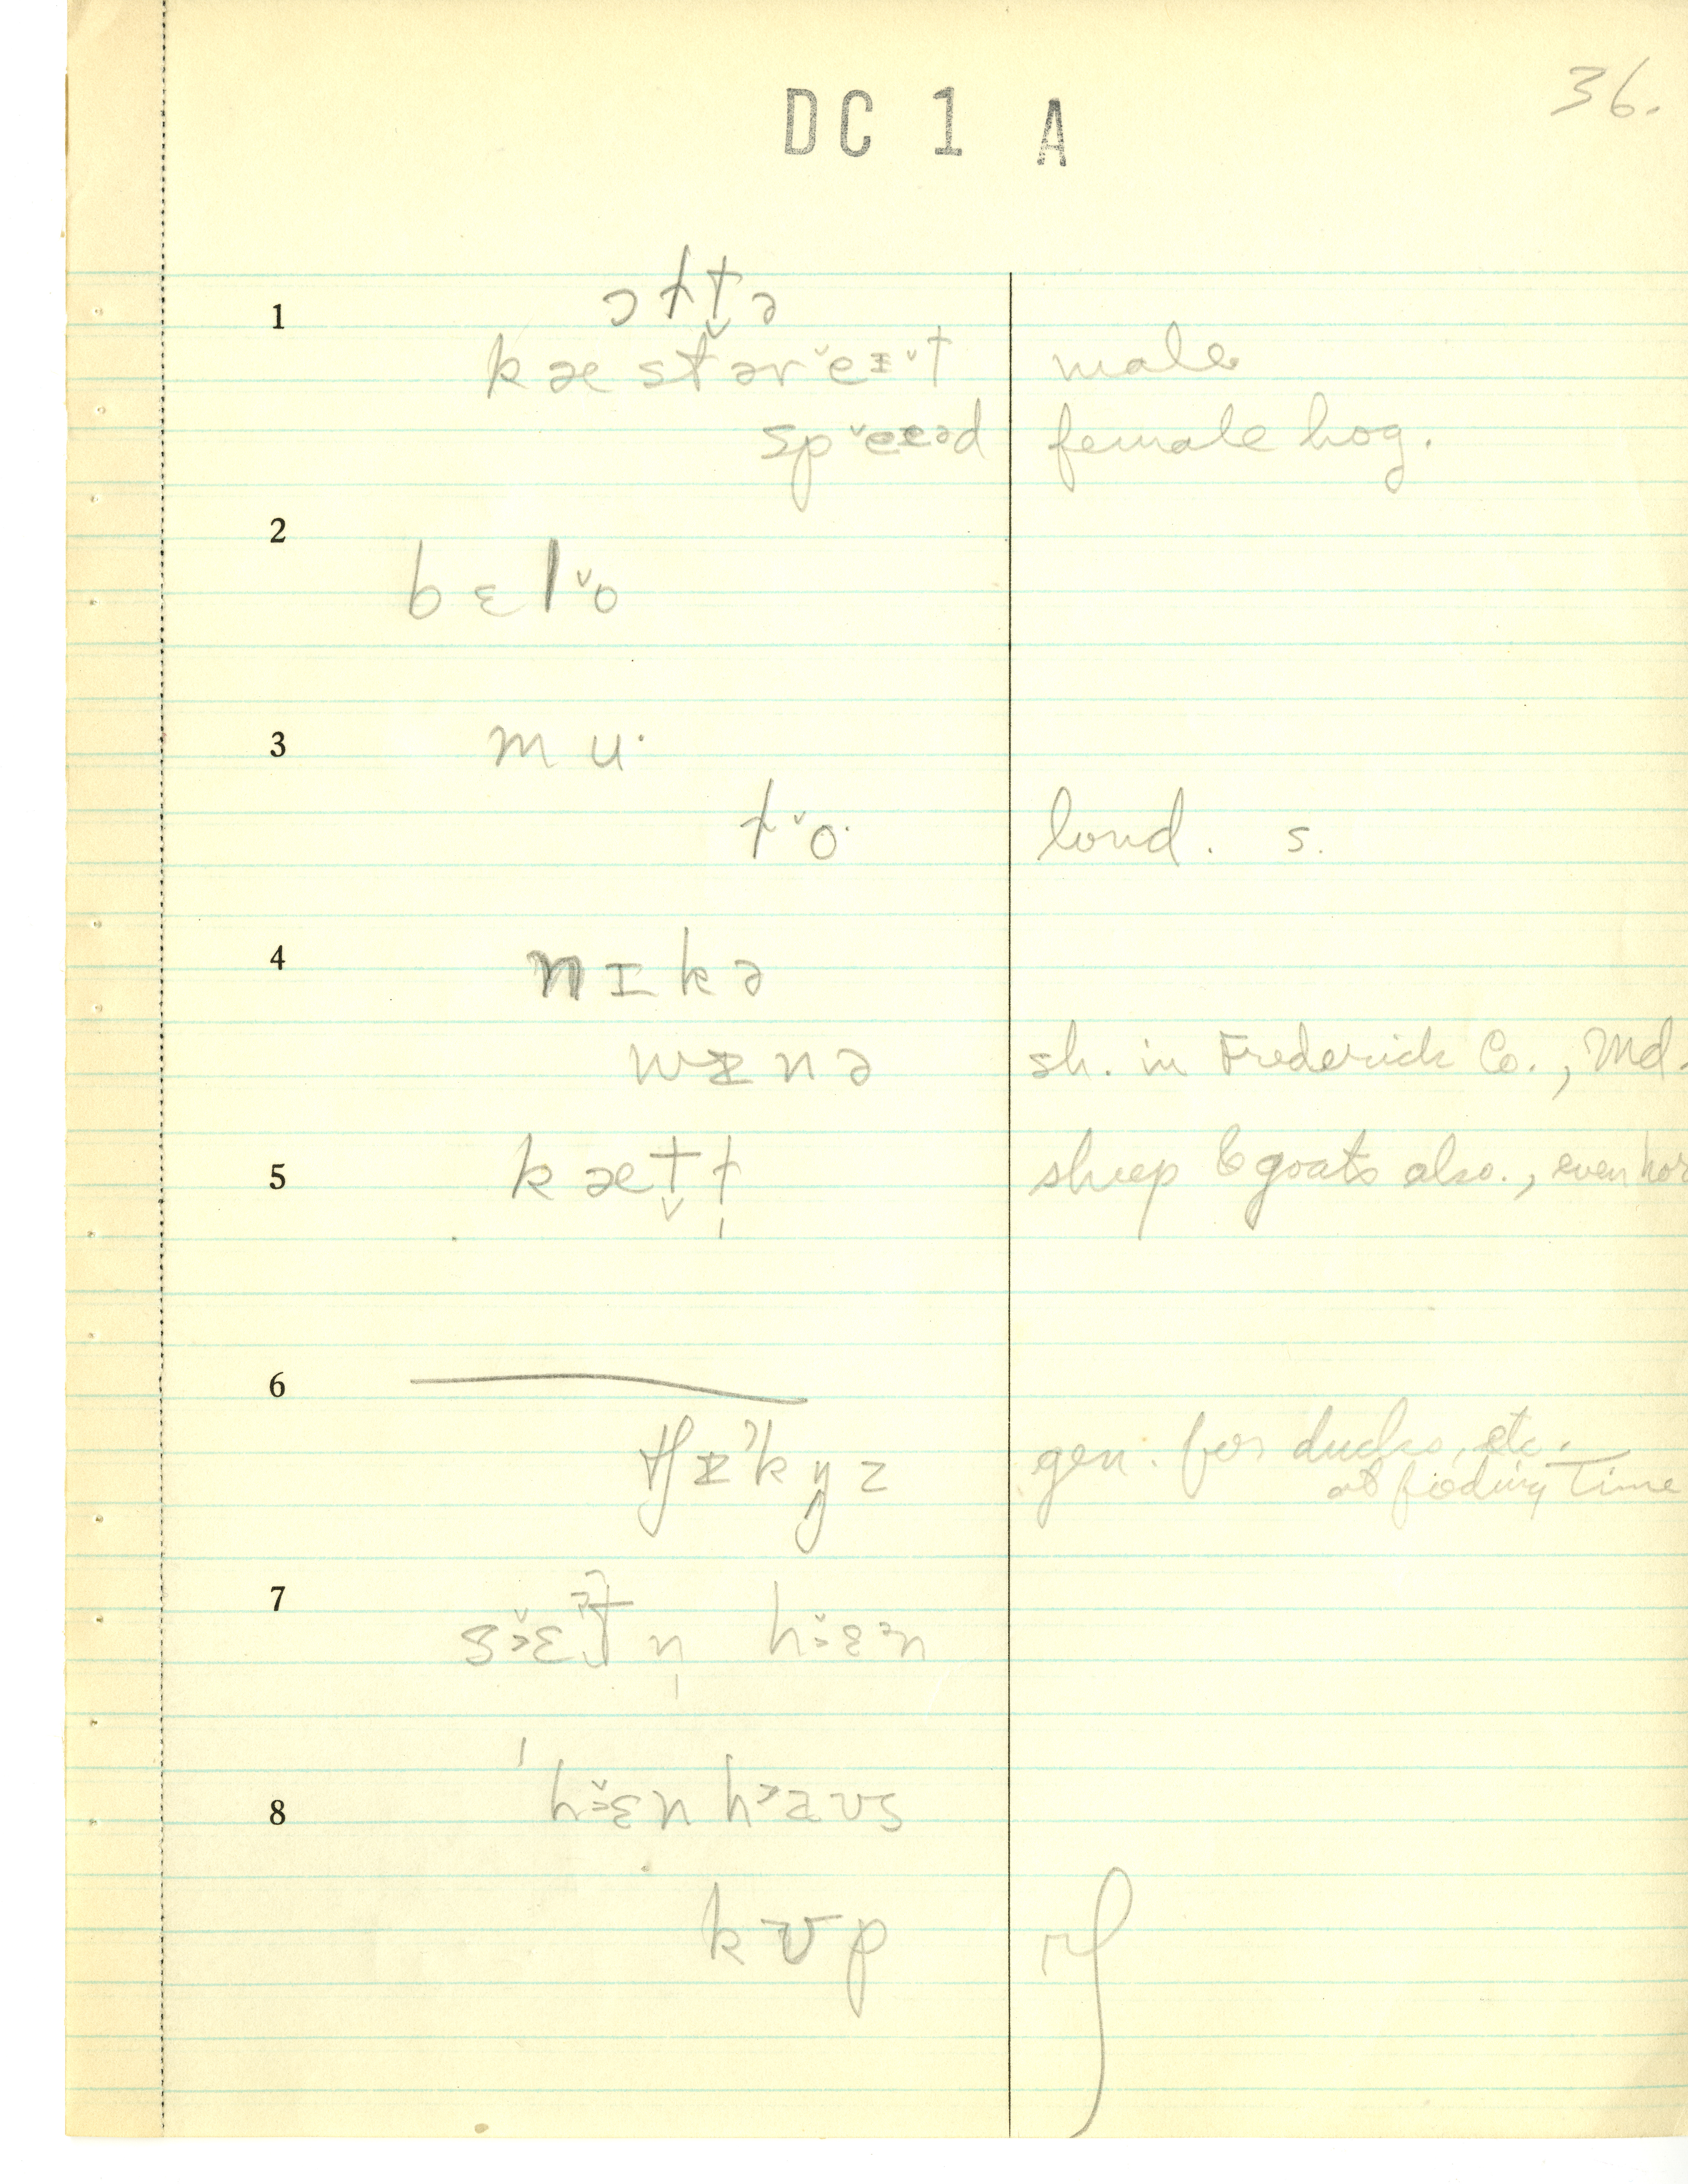 36.
DC 1 A
1 ɔɫt̬ə
kæstərˇeɪˇt male
spˇeɪəd female hog.
2 bɛlˇo
3 mu·
ɫˇo· loud. s.
4 nɪkə
wɪnə sh. in Frederick Co., Md.
5 kæt̬ɫ̩ sheep & goats also., even hor
6
tʃɪˀkɪŋz gen. for ducks, etc.
at feeding time
7 hˇɛᵊn
8 ˈhˇɛnhaʊs
kʊp